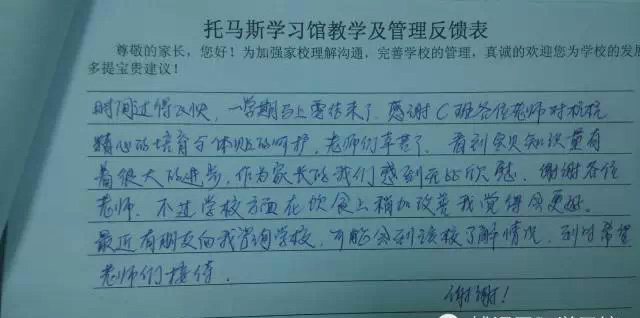 托马斯学习馆教学及管理反馈表
尊敬的家长,您好!为加强家校理解沟通,完善学校的管理,真诚的欢迎您为学校的发展
多提宝贵建议!
时间过得飞快,一学期马上要结束了.感谢C班各位老师对杭杭
精心的培育与体贴的呵护,老师们辛苦了.看到宝贝知识量有
着很大的进步,作为家长的我们感到无比欣慰.谢谢各位
老师.不过学校方面在饮食上稍加改善我觉得会更好.
最近有朋友向我咨询学校,可能会到该校了解情况,到时希望
老师们接待.
谢谢!